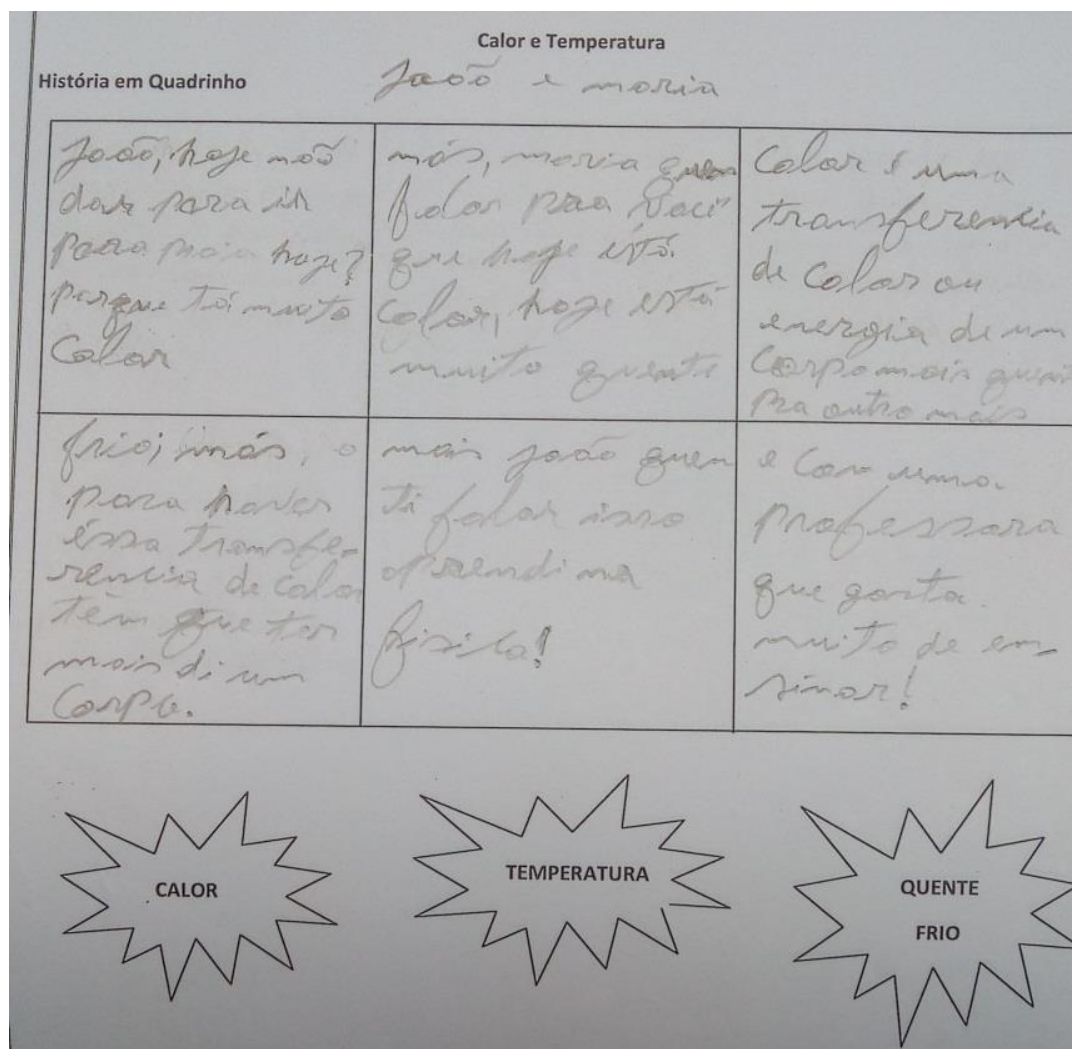 Calor e Temperatura
História em Quadrinho
João e maria
João, hoje não
dar para ir
para praia hoje?
porque tá muito
Calor
más, maria quem
falar para você
que hoje está
calor, hoje está
muito quente
Calor é uma
transferencia
de Calor ou
energia de um
Corpo mais quente
pra outro mais
frio; más, o
para haver
éssa transfe-
rência de calor
têm que ter
mais di um
Corpo.
mais joão quem
ti falar isso
aprendi na
física!
e com uma
professora
que gosta
muito de en-
sinar!
CALOR
TEMPERATURA
QUENTE
FRIO